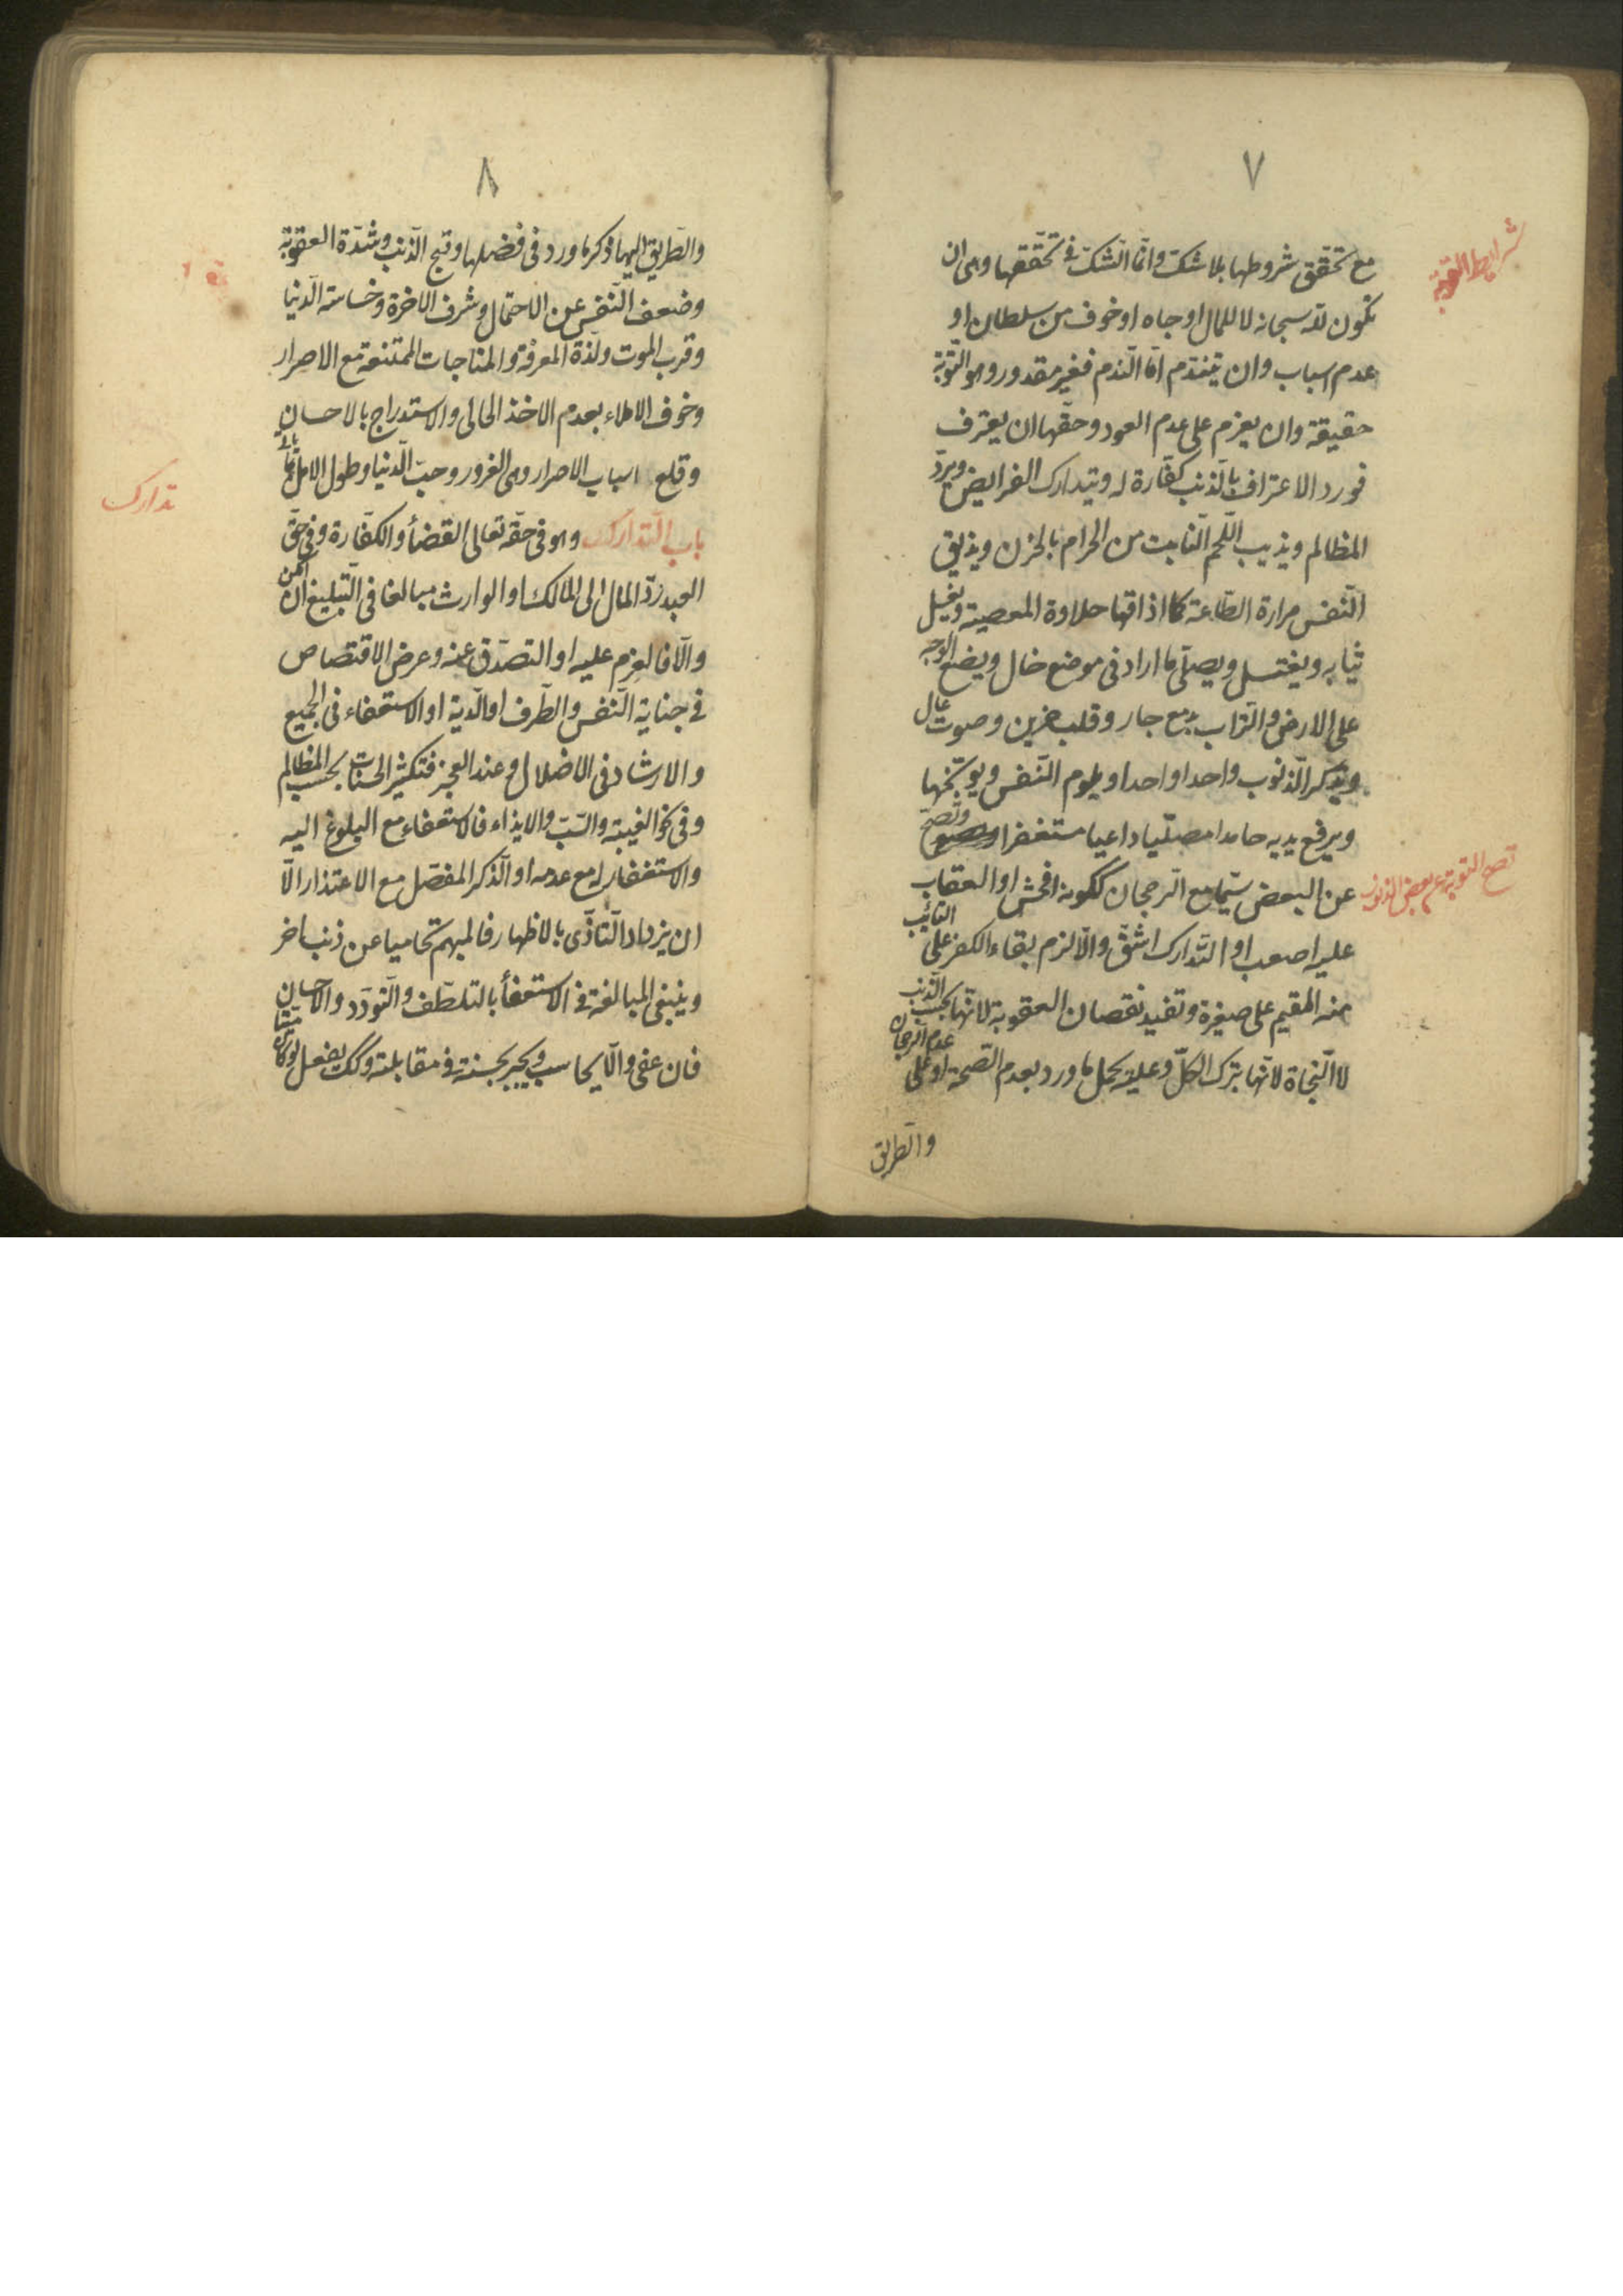 ٧
شرايط التوبة
مع تحقّق شروطها بلا شكّ وانّما الشكّ فى تحقّقها وهى ان
تكون للّه سبحانه لا للمال او جاه او خوف من سلطان او
عدم اسباب وان يتندّم امّا النّدم فغير مقدور وهو التّوبة
حقيقة وان يعزم على عدم العود وحقّها ان يعترف
فورد الاعتراف بالذنب كفّارة له ويتدارك الفرايض ويردّ
المظالم ويذيب اللّحم النّابت من الحرام بالحزن ويذيق
النّفس مرارة الطّاعة كما اذاقها حلاوة المعصية ويغسل
ثيابه ويغتسل ويصلّى ما اراد فى موضع خال ويضع الوجه
على الارض والتّراب بدمع جار وقلب حزين وصوت عال
ويتذكر الذّنوب واحدا واحدا ويلوم النّفس ويوبّخها
ويرفع يديه حامدا مصلّيا داعيا مستغفرا وتصحّ
تصح التوبة عن بعض الذنوب
عن البعض سيّما مع الرّجحان ككونه افحش او العقاب
عليه اصعب او التّدارك اشقّ والّا لزم بقاء الكفر على التائب
منه المقيم على صغيرة وتفيد نقصان العقوبة لانّها بحسب الذّنب
لا النّجاة لانّها بترك الكلّ وعليه يحمل ما ورد بعدم الصّحة او على عدم الرّجحان
والطريق
٨
والطّريق اليها ذكر ما ورد فى فضلها وقبح الذّنب وشدّة العقوبة
وضعف النّفس عن الاحتمال وشرف الاخرة وخساسة الدّنيا
وقرب الموت ولذّة المعرفة والمناجات الممتنعة مع الاصرار
وخوف الاملاء بعدم الاخذ الحالى والاستدراج بالاحسان
وقلع اسباب الاصرار وهى الغرور وحبّ الدّنيا وطول الامل
تدارك
باب التّدارك وهو فى حقّه تعالى القضأ والكفّارة وفى حقّ
العبد ردّ المال الى المالك او الوارث مبالغا فى التّبليغ ان امكن
والّا فالعزم عليه او التصدّق عنه وعرض الاقتصاص
فى جناية النّفس والطّرف او الدّية او الاستعفاء فى الجميع
والارشاد فى الاضلال وعند العجز فتكثير الحسنات بحسب المظالم
وفى نحو الغيبة والسّبّ والايذاء فالاستعفاء مع البلوغ اليه
والاستغفار له مع عدمه او الذّكر المفصّل مع الاعتذار الّا
ان يزداد التّاذّى بالاظهار فالمبهم تحاميا عن ذنب اخر
وينبغى المبالغة فى الاستعفأ بالتلطّف والتّودّد والاحسان
فان عفى والّا يحاسب ويجبر بحسنة فى مقابلته وكك يفعل لو كان ميّتا